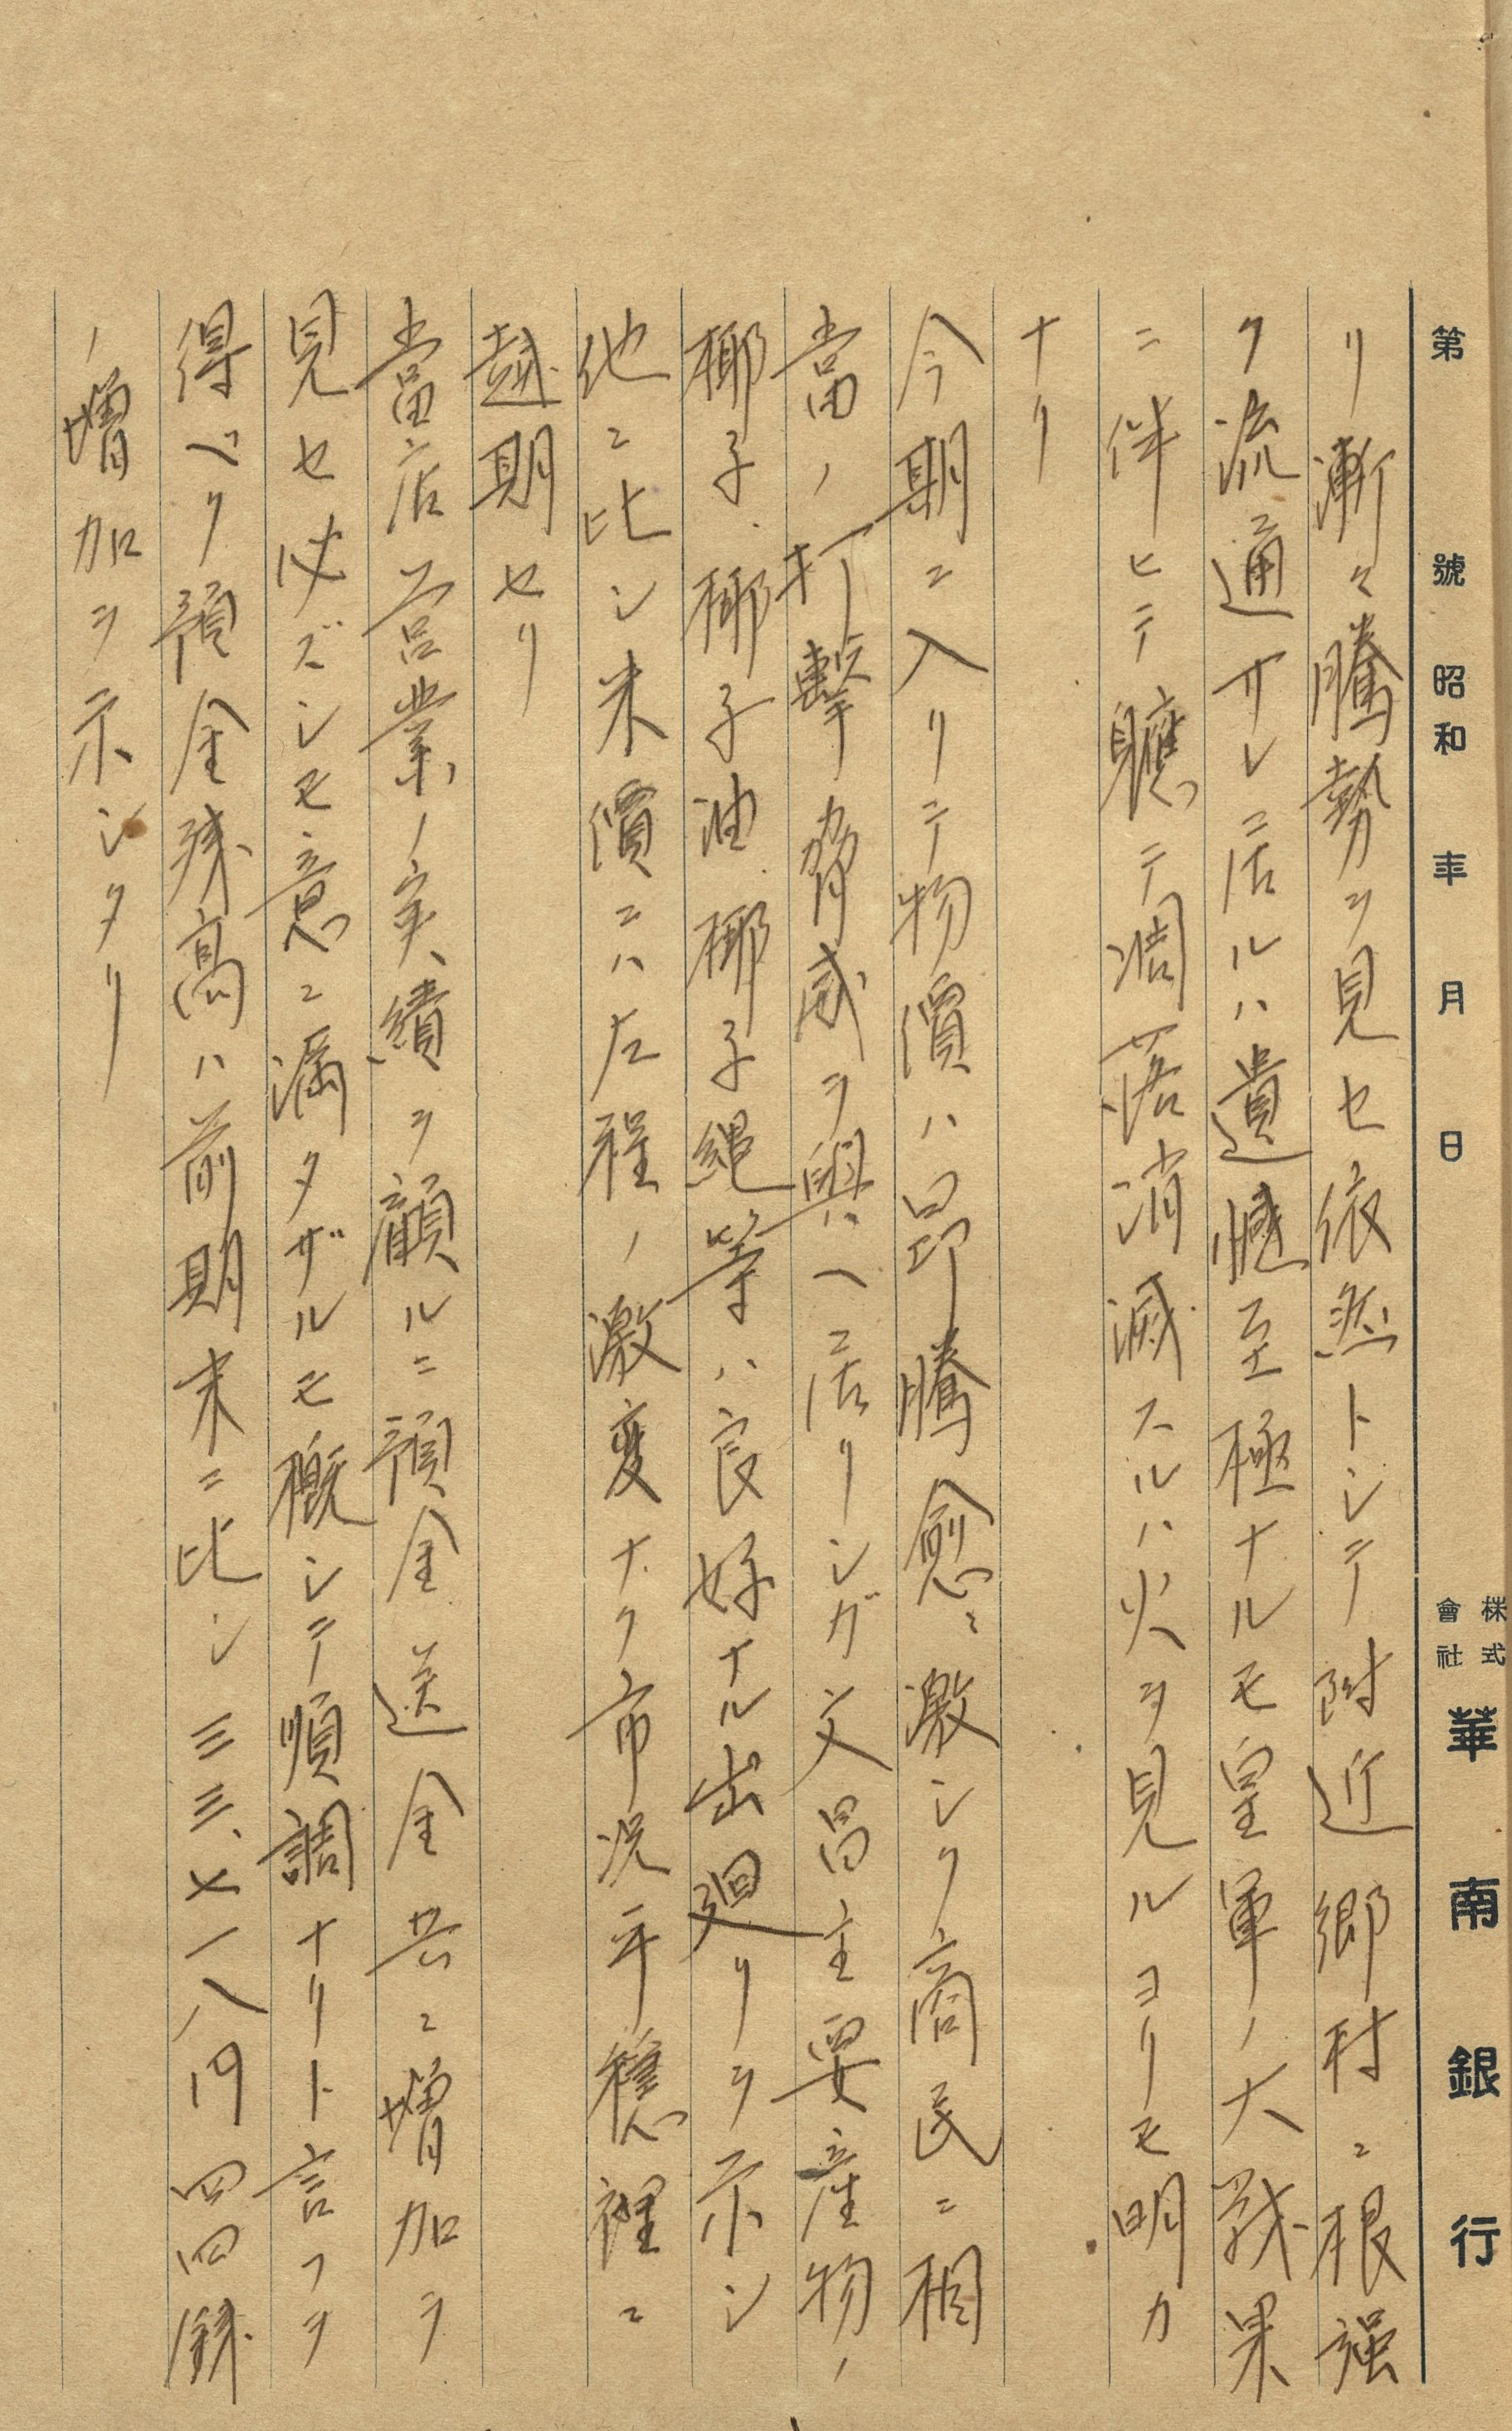 第 號 昭和 年 月 日 株式會社 華南銀行
リ漸々騰勢ヲ見セ依然トシテ附近鄉村ニ根強
ク流通サレ居ルハ遺憾至極ナルモ皇軍ノ大戰果
ニ伴ヒテ軈テ凋落消滅スルハ火ヲ見ルヨリモ明カ
ナリ
今期ニ入リテ物價ハ昂騰愈〻激シク商民ニ相
當ノ打擊脅威ヲ與ヘ居リシガ文昌主要產物ノ
椰子、椰子油、椰子繩等ハ良好ナル出廻リヲ示シ
他ニ比シ米價ニハ左程ノ激変ナク市況平穩裡ニ
越期セリ
當店営業ノ実績ヲ顧ルニ預金送金共ニ增加ヲ
見セ必ズシモ意ニ滿タザルモ概シテ順調ナリト言フヲ
得ベク預金残高ハ前期末ニ比シ三三、七一八円四四錢
ノ增加ヲ示シタリ